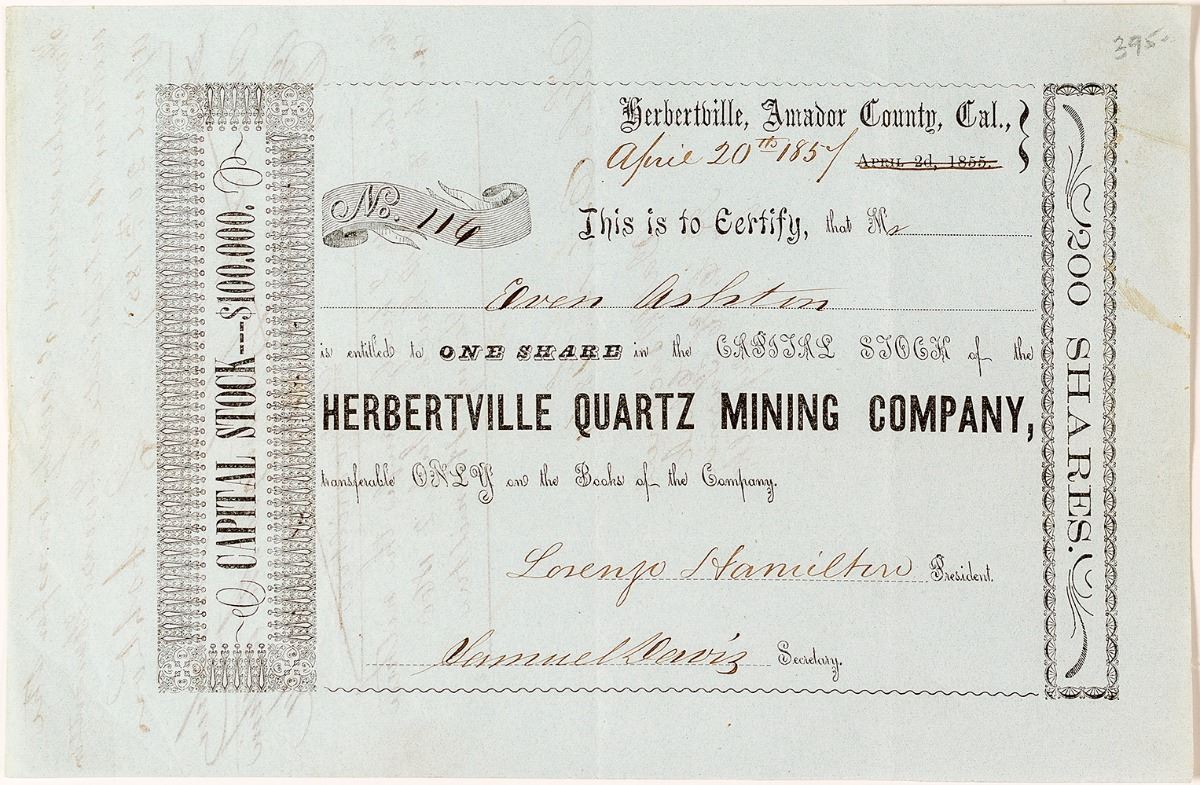 395-
Herbertville, Amador County, Cal.,
April 20th 1857 APRIL 2d, 1855.
No. 116
This is to Certify, that Mr
Even Ashton
is entitled to ONE SHARE in the CAPITAL STOCK of the
HERBERTVILLE QUARTZ MINING COMPANY,
transferable ONLY on the Books of the Company.
Lorenzo Hamilton President.
Samuel Davis Secretary.
CAPITAL STOCK---$100.000.
200 SHARES.